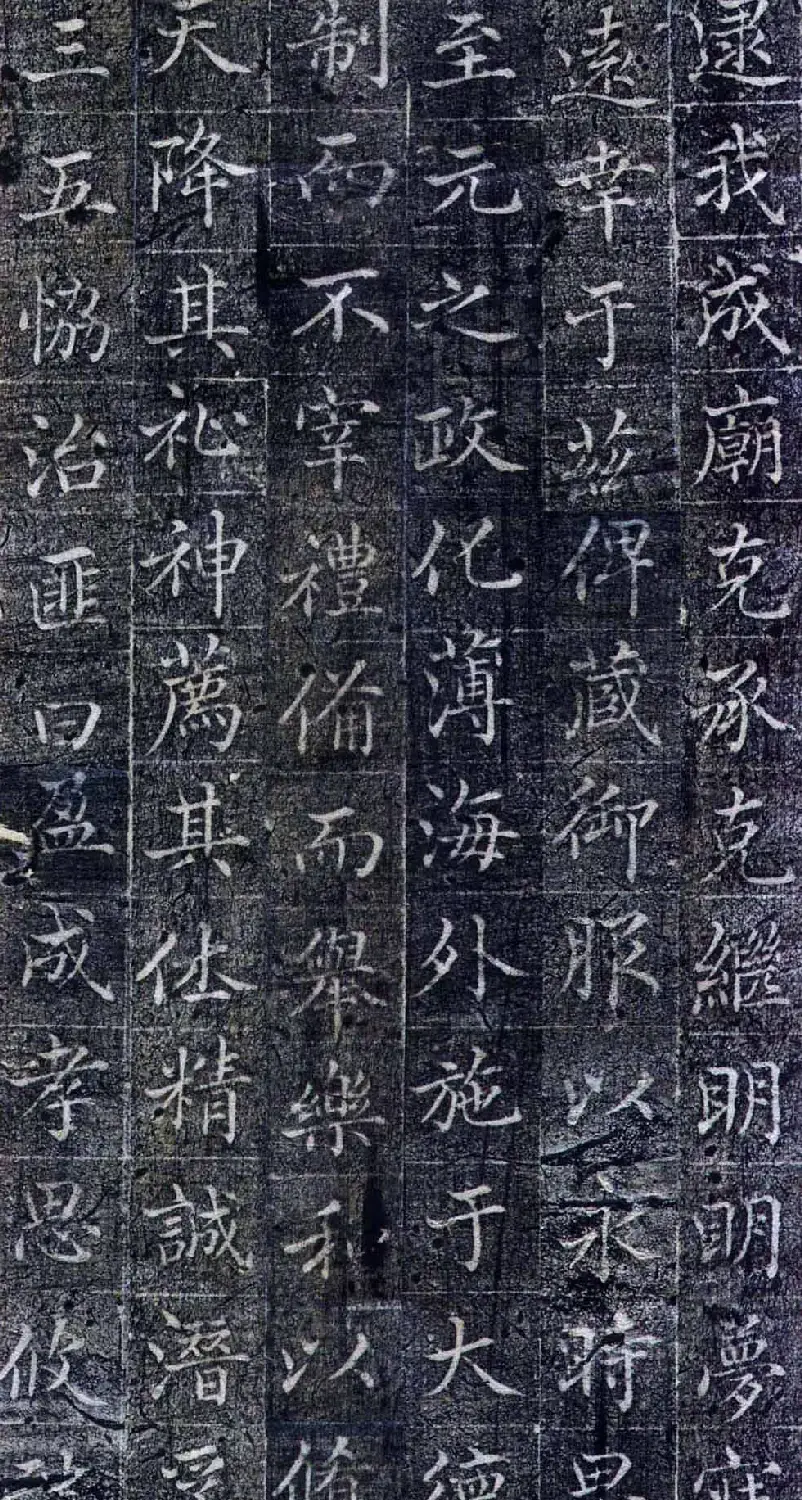 逮我成廟克承克繼明明夢寐
遠幸于茲俾藏御服以永時思
至元之政化薄海外施于大德
制而不宰禮備而舉樂和以脩
天降其祉神薦其休精誠潛孚
三五協治匪曰盈成孝思攸